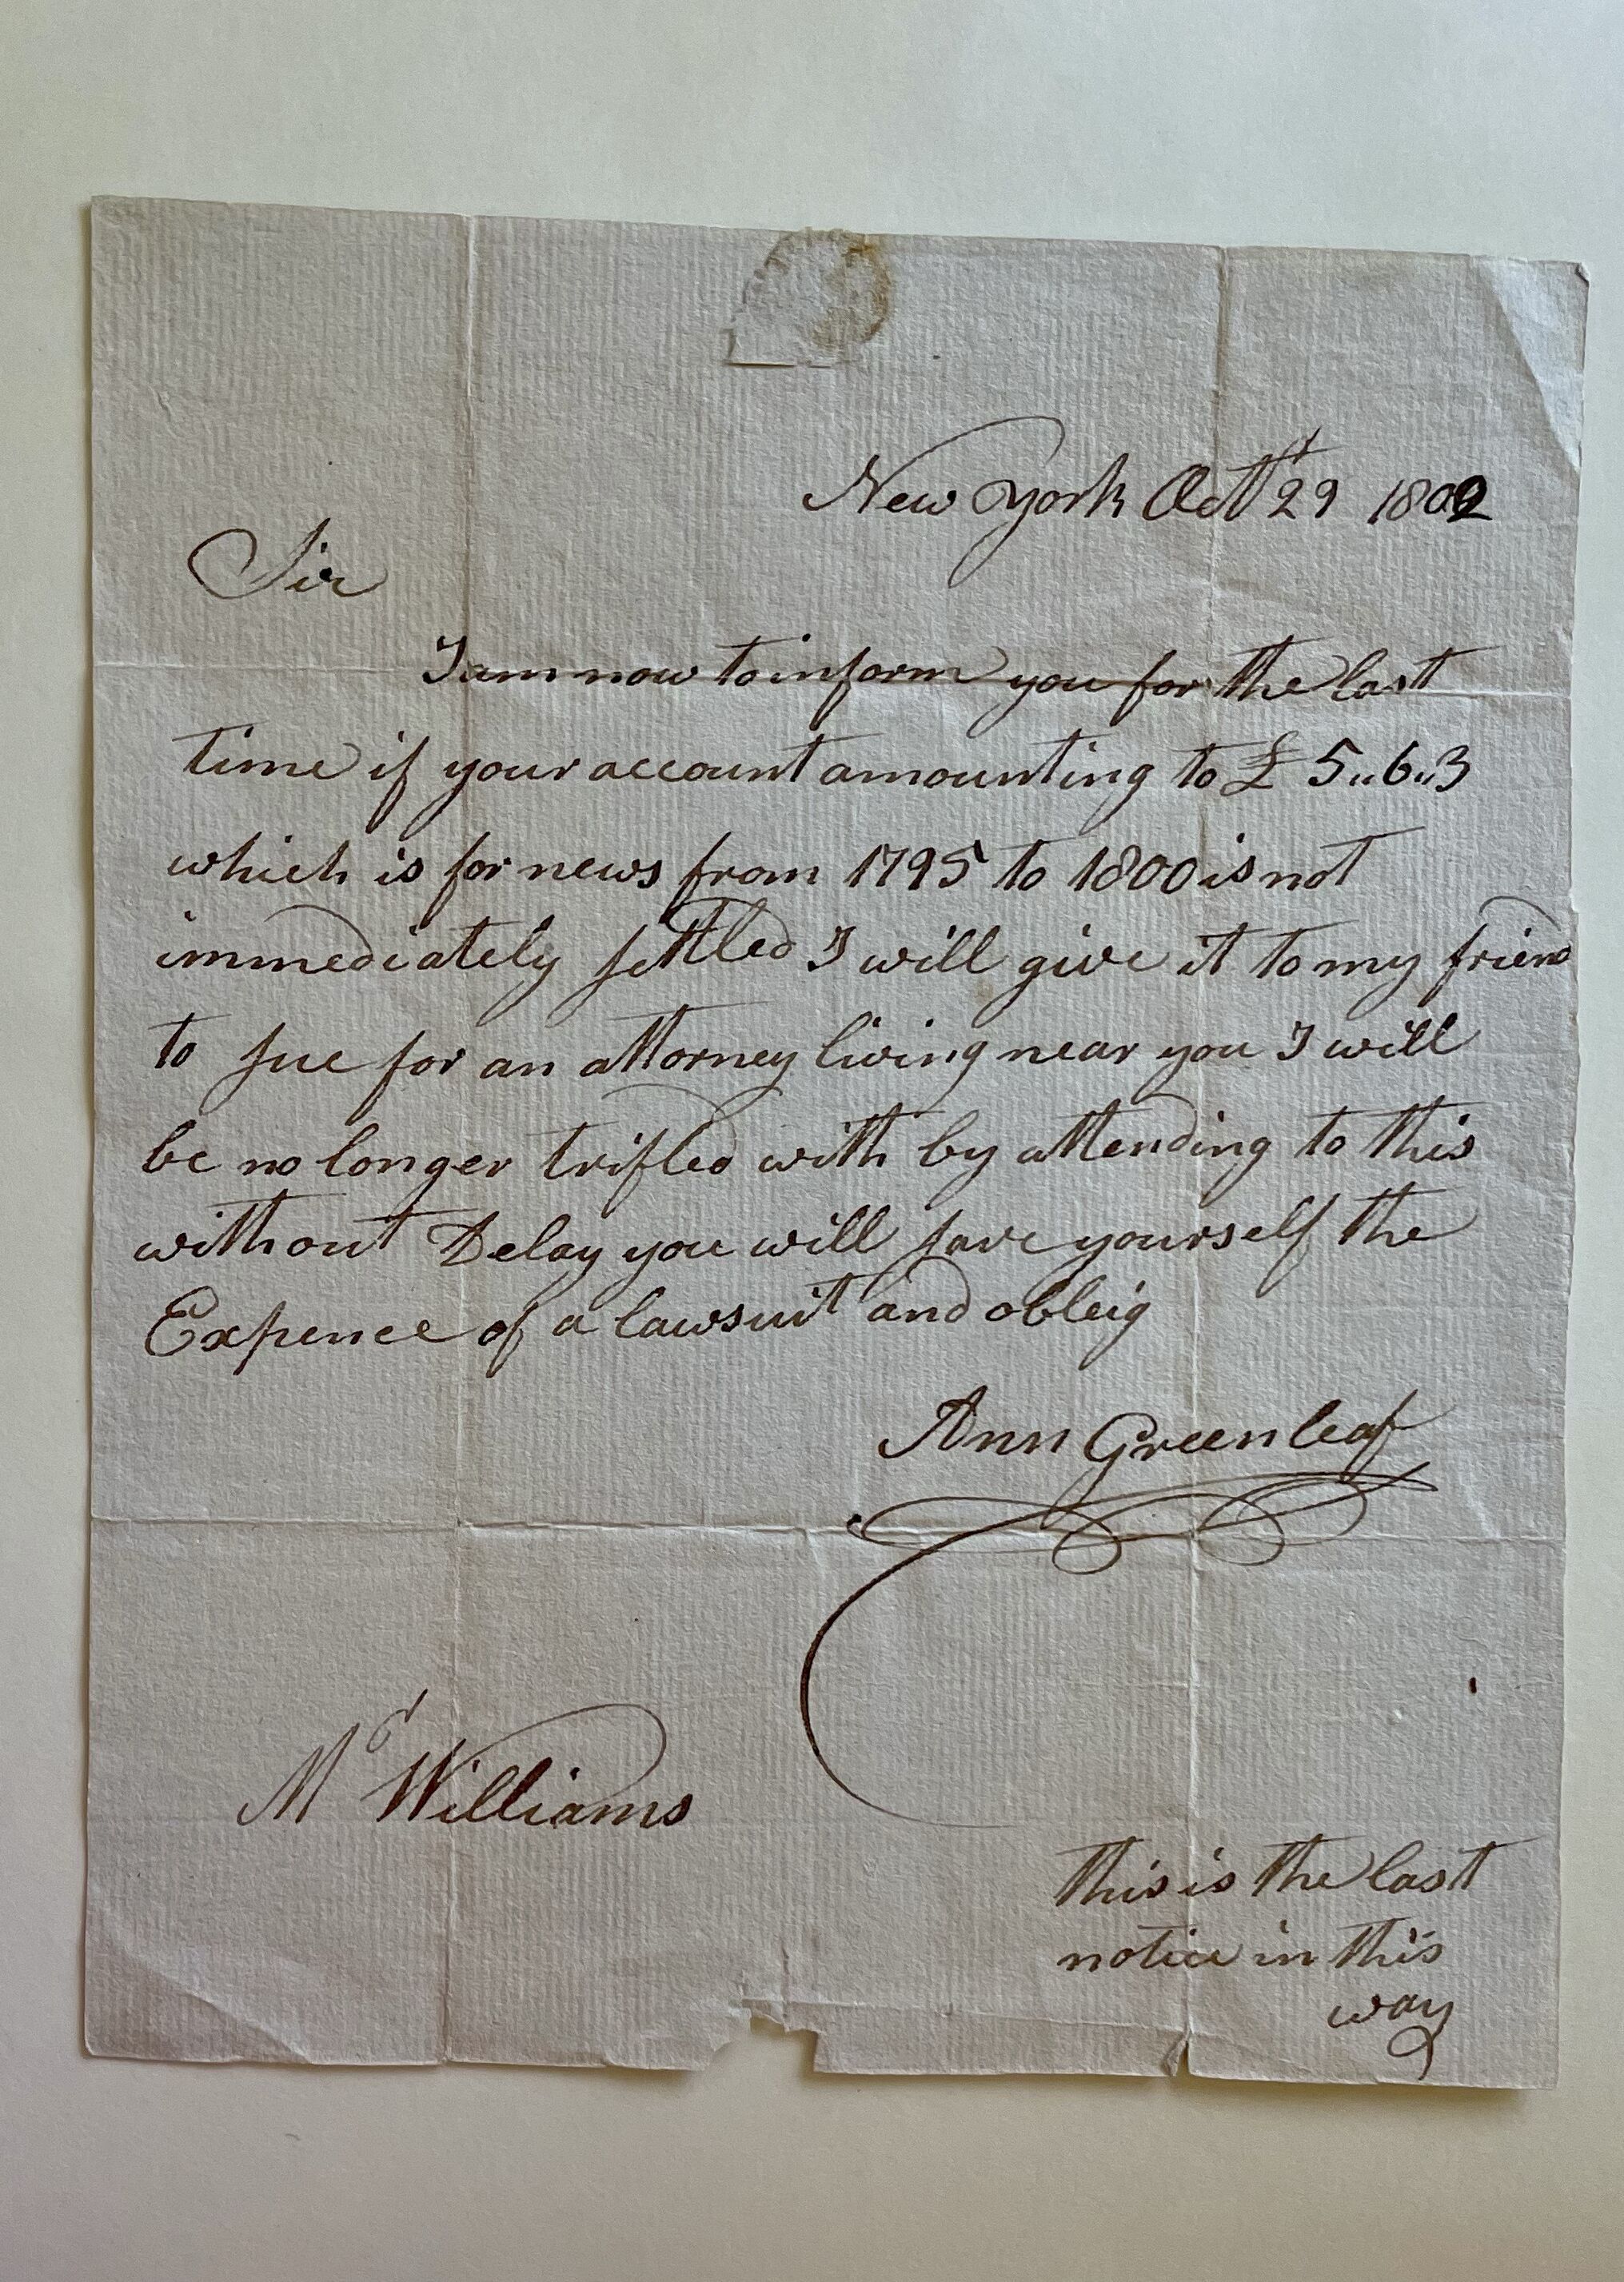 New York Octr 29 1802
Sir
I am now to inform you for the last
time if your account amounting to £ 5,,6,,3
which is for news from 1795 to 1800 is not
immediately settled I will give it to my friend
to sue for an attorney living near you I will
be no longer trifled with by attending to this
without Delay you will save yourself the
Expence of a lawsuit and obleig
Ann Greenleaf
Mr Williams
this is the last
notice in this
way